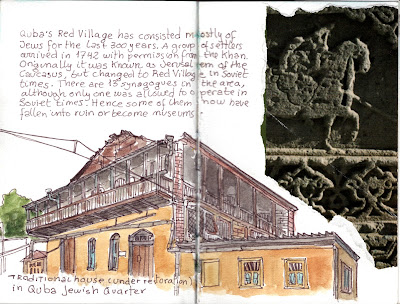 Quba's Red Village has consisted mostly of
Jews for the last 300 years. A group of settlers
arrived in 1742 with permission from the Khan.
Originally it was known as Jerusalem of the
Caucasus, but changed to Red Village in Soviet
times. There are 13 synagogues in the area,
although only one was allowed to operate in
Soviet times. Hence some of them now have
fallen into ruin or become museums.
TRADITIONAL house (under restoration)
in Quba Jewish Quarter